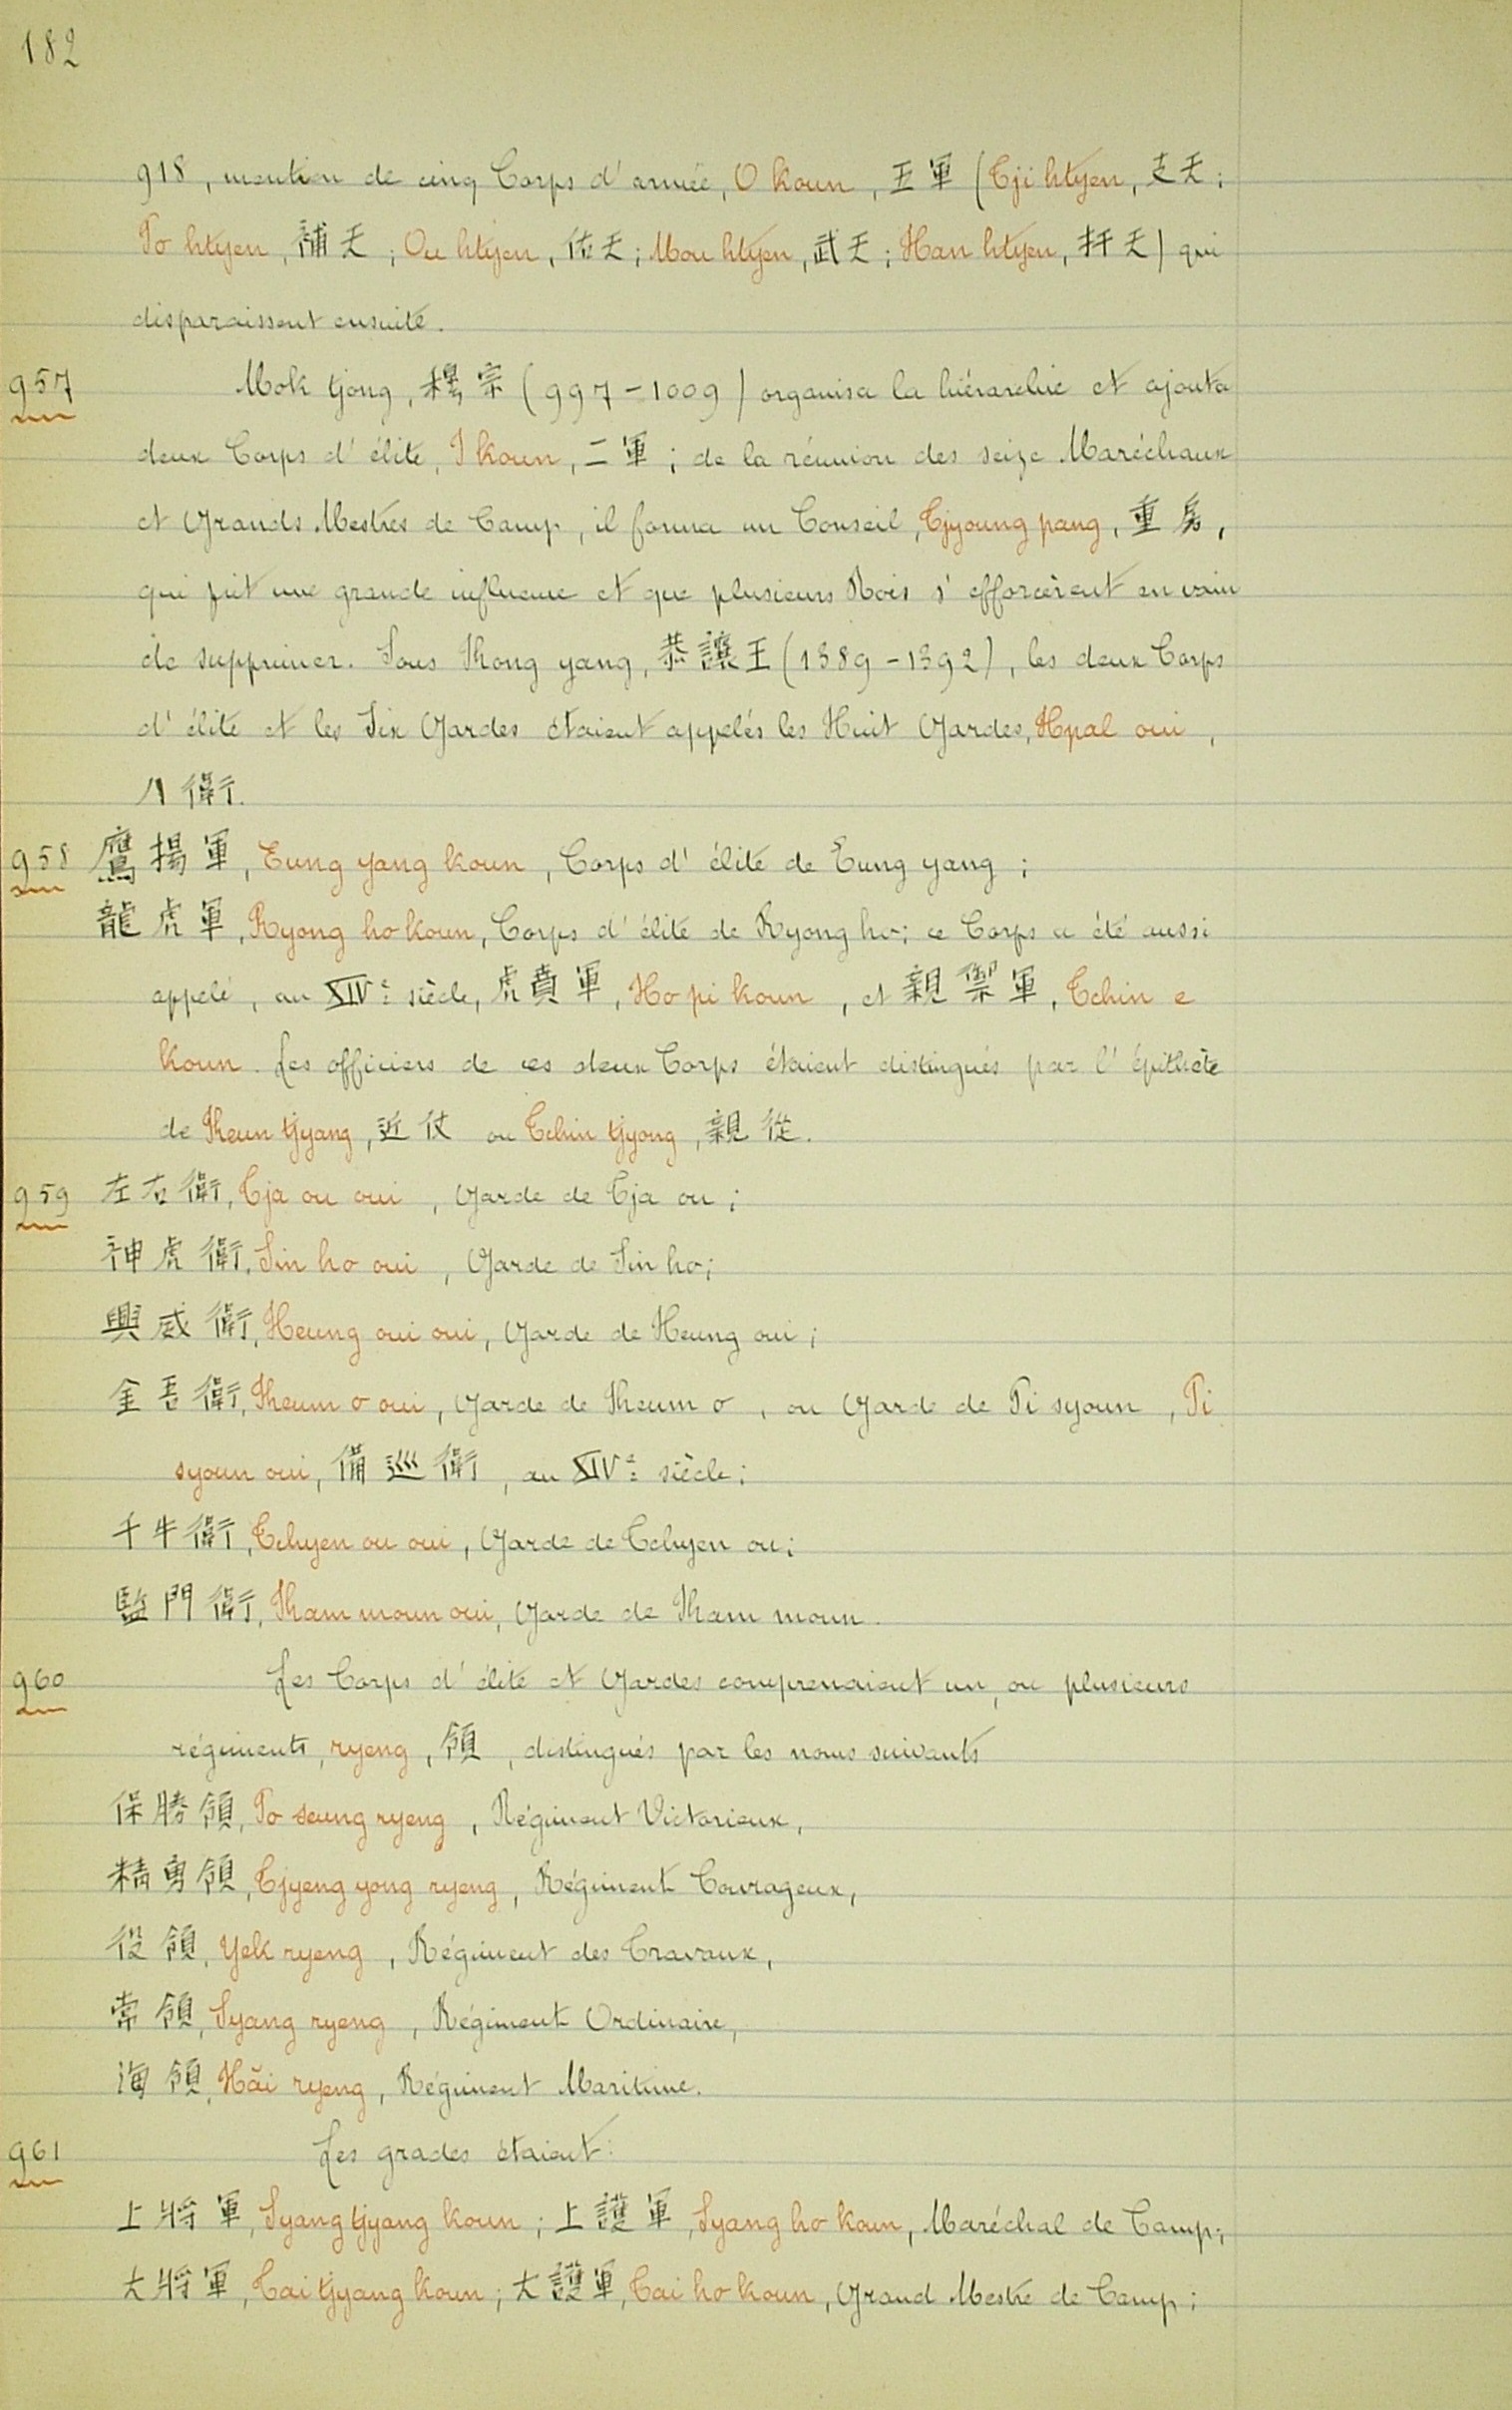 182
918, mention de cinq Corps d'armée, O koun, 五軍 (Tji htyen, 支天;
Po htyen, 補天; Ou htyen, 佐天; Mou htyen, 武天; Han htyen, 扞天) qui
disparaissent ensuite.
957 Mok tjong, 穆宗 (997-1009) organisa la hiérarchie et ajouta
deux Corps d'élite, I koun, 二軍; de la réunion des seize Maréchaux
et Grands Mestres de Camp, il forma un Conseil, Tjyoung pang, 重房,
qui prit une grande influence et que plusieurs Rois s'efforcèrent en vain
de supprimer. Sous Kong yang, 恭讓王 (1389-1392), les deux Corps
d'élite et les Six Gardes étaient appelés les Huit Gardes, Hpal oui,
八衛.
958 鷹揚軍, Eung yang koun, Corps d'élite de Eung yang;
龍虎軍, Ryong ho koun, Corps d'élite de Ryong ho; ce Corps a été aussi
appelé, au XIVe siècle, 虎賁軍, Ho pi koun, et 親禦軍, Tchin e
koun. Les officiers de ces deux Corps étaient distingués par l'épithète
de Keun tjyang, 近仗 ou Tchin tjyong, 親從.
959 左右衛, Tja ou oui, Garde de Tja ou;
神虎衛, Sin ho oui, Garde de Sin ho;
興威衛, Heung oui oui, Garde de Heung oui;
金吾衛, Keum o oui, Garde de Keum o, ou Garde de Pi syoun, Pi
syoun oui, 備巡衛, au XIVe siècle;
千牛衛, Tchyen ou oui, Garde de Tchyen ou;
監門衛, Kam moun oui, Garde de Kam moun.
960 Les Corps d'élite et Gardes comprenaient un, ou plusieurs
régiments, ryeng, 領, distingués par les noms suivants
保勝領, Po seung ryeng, Régiment Victorieux,
精勇領, Tjyeng yong ryeng, Régiment Courageux,
役領, Yek ryeng, Régiment des Travaux,
常領, Syang ryeng, Régiment Ordinaire,
海領, Hăi ryeng, Régiment Maritime.
961 Les grades étaient:
上將軍, Syang tjyang koun; 上護軍, Syang ho koun, Maréchal de Camp;
大將軍, Tai tjyang koun; 大護軍, Tai ho koun, Grand Mestre de Camp;